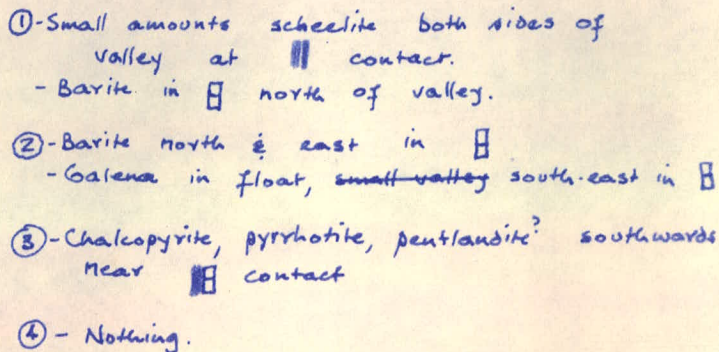 ①-Small amounts scheelite both sides of
valley at contact.
- Barite in north of valley.
②-Barite north & east in
-Galena in float, small valley south-east in
③-Chalcopyrite, pyrrhotite, pentlandite? southwards
near contact
④ - Nothing.